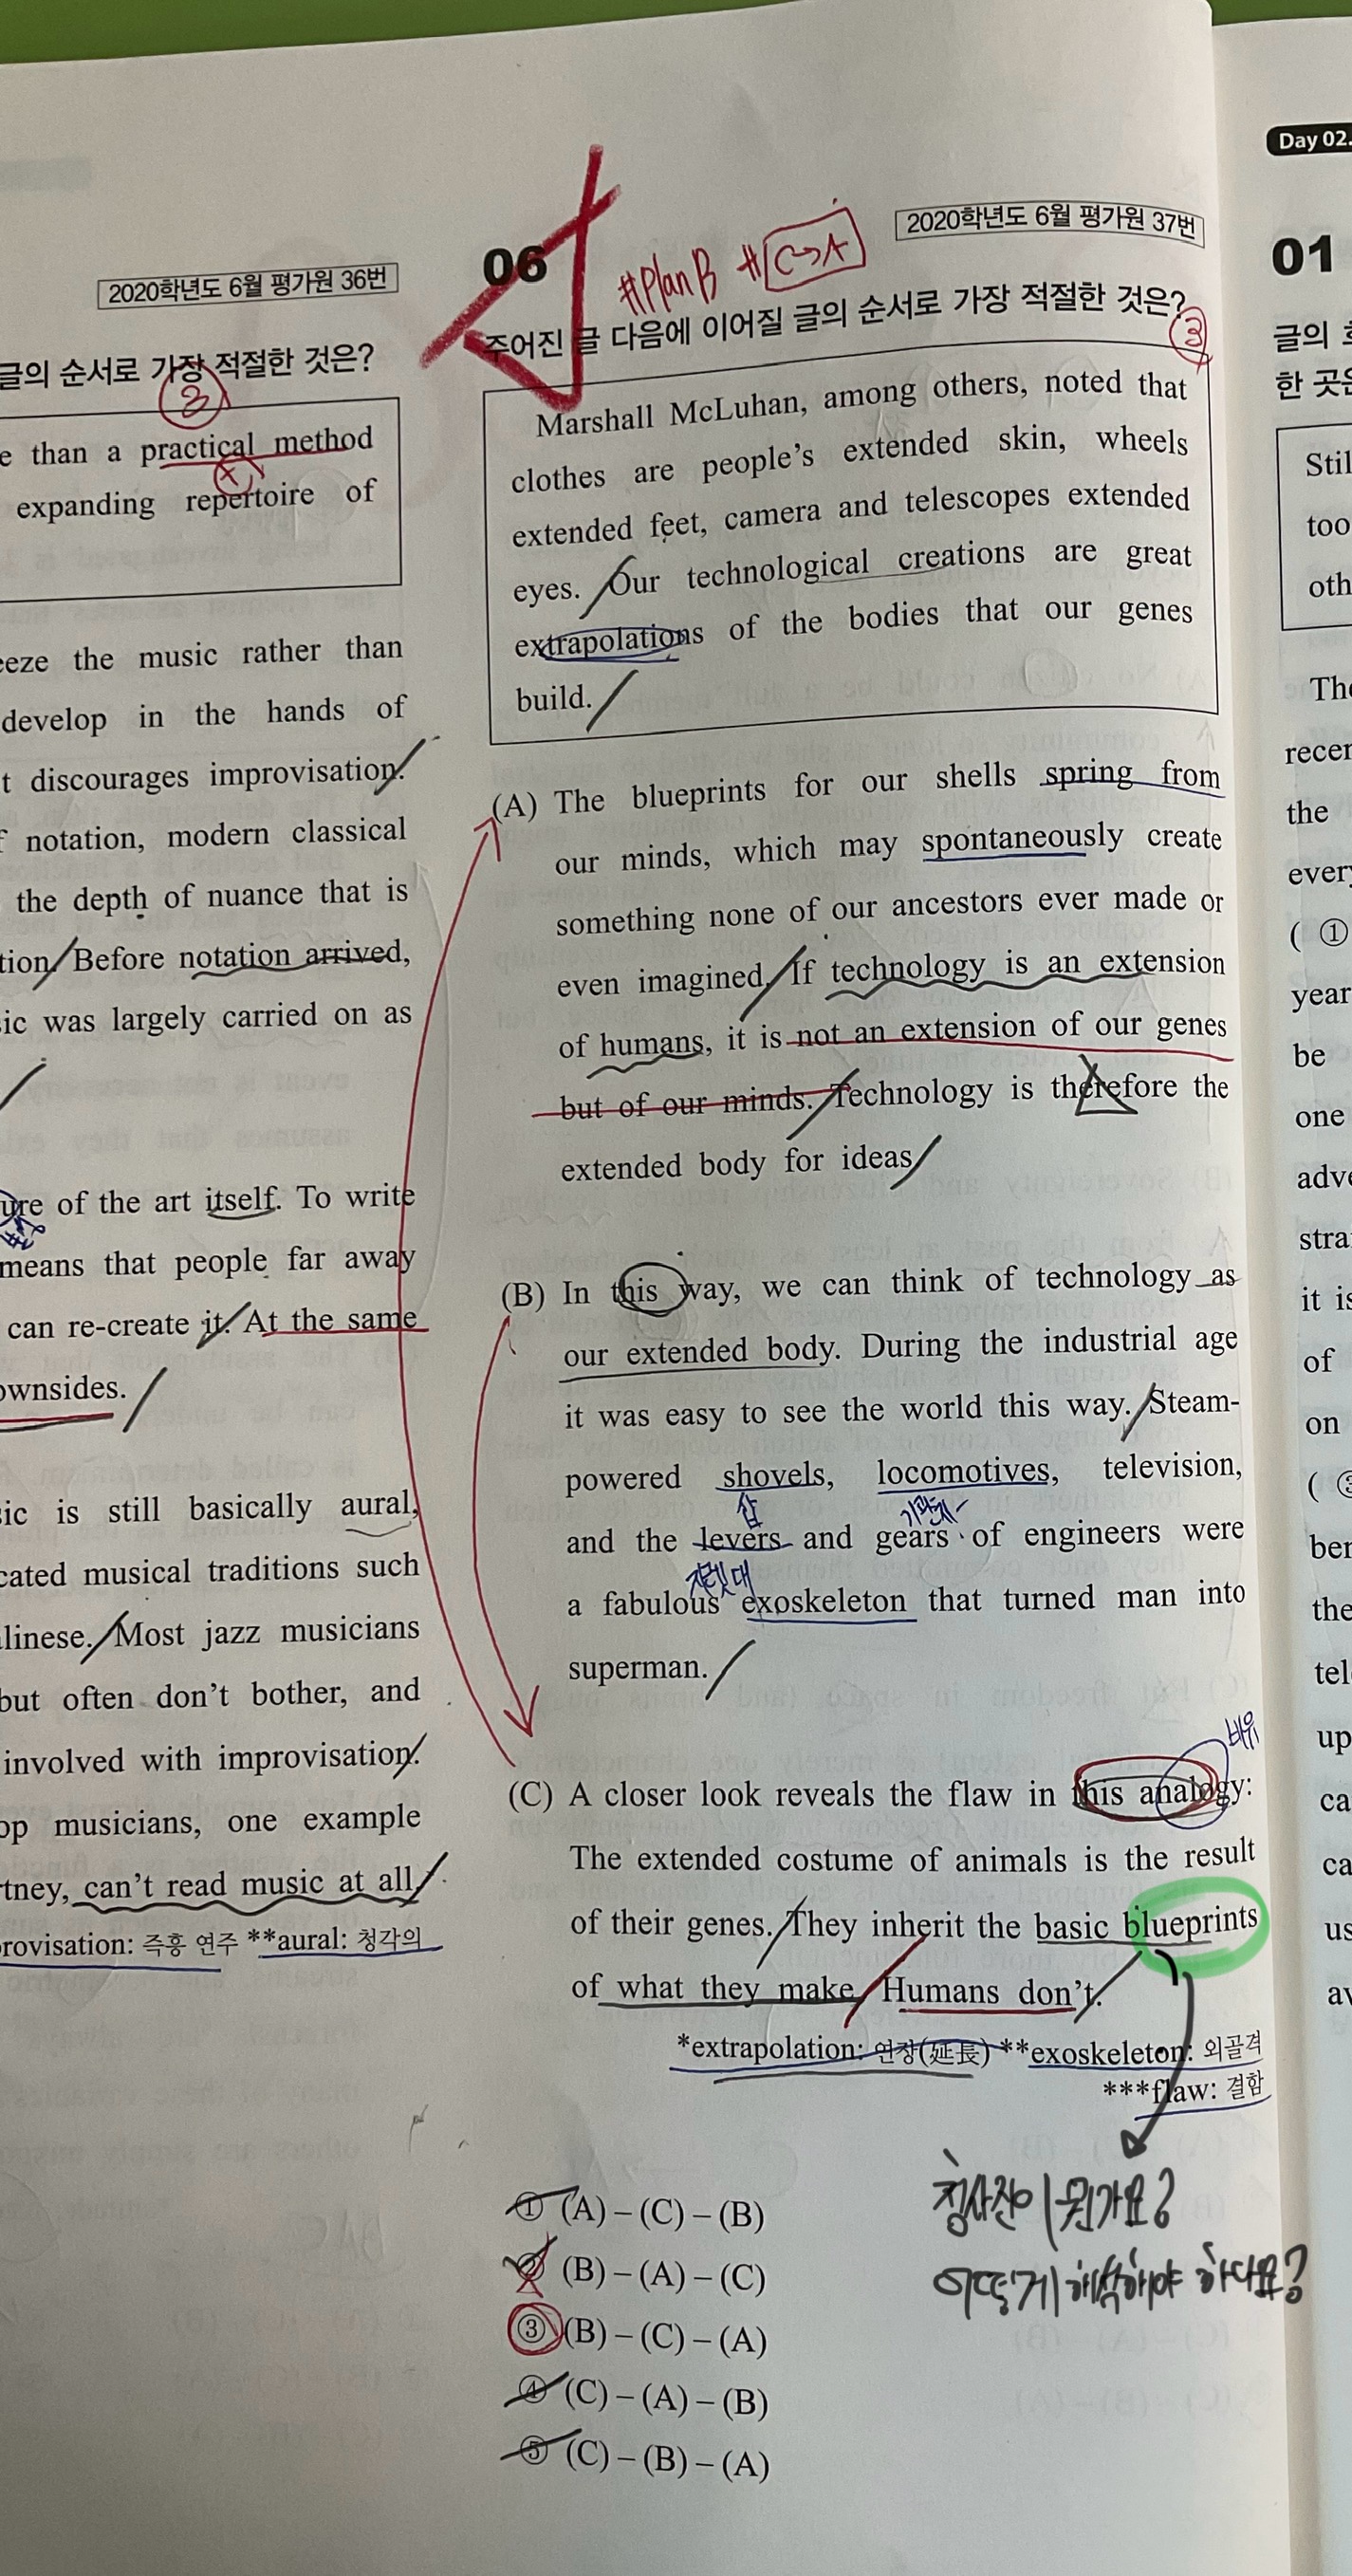 2020학년도 6월 평가원 36번
글의 순서로 가장 적절한 것은?
3
e than a practical method
expanding repertoire of
eeze the music rather than
develop in the hands of
t discourages improvisation.
f notation, modern classical
the depth of nuance that is
tion. Before notation arrived,
ic was largely carried on as
ure of the art itself. To write
means that people far away
can re-create it. At the same
ownsides.
sic is still basically aural,
cated musical traditions such
linese. Most jazz musicians
but often don't bother, and
involved with improvisation.
op musicians, one example
rtney, can't read music at all.
rovisation: 즉흥 연주 **aural: 청각의
2020학년도 6월 평가원 37번
06
#PlanB #C→A
주어진 글 다음에 이어질 글의 순서로 가장 적절한 것은?
③
Marshall McLuhan, among others, noted that
clothes are people's extended skin, wheels
extended feet, camera and telescopes extended
eyes. Our technological creations are great
extrapolations of the bodies that our genes
build.
(A) The blueprints for our shells spring from
our minds, which may spontaneously create
something none of our ancestors ever made or
even imagined. If technology is an extension
of humans, it is not an extension of our genes
but of our minds. Technology is therefore the
extended body for ideas.
(B) In this way, we can think of technology as
our extended body. During the industrial age
it was easy to see the world this way. Steam-
powered shovels, locomotives, television,
삽 기관차
and the levers and gears of engineers were
지렛대
a fabulous exoskeleton that turned man into
superman.
비유
(C) A closer look reveals the flaw in this analogy:
The extended costume of animals is the result
of their genes. They inherit the basic blueprints
of what they make. Humans don't.
*extrapolation: 연장(延長) **exoskeleton: 외골격
***flaw: 결함
청사진이 뭔가요?
어떻게 해석해야 하나요?
① (A) – (C) – (B)
② (B) – (A) – (C)
③ (B) – (C) – (A)
④ (C) – (A) – (B)
⑤ (C) – (B) – (A)
Day 02.
01
글의
한 곳은
Stil
too
oth
The
recen
the
every
( ①
year
be
one
adve
stra
it is
of
on
( ③
ben
the
tel
up
ca
ca
us
av